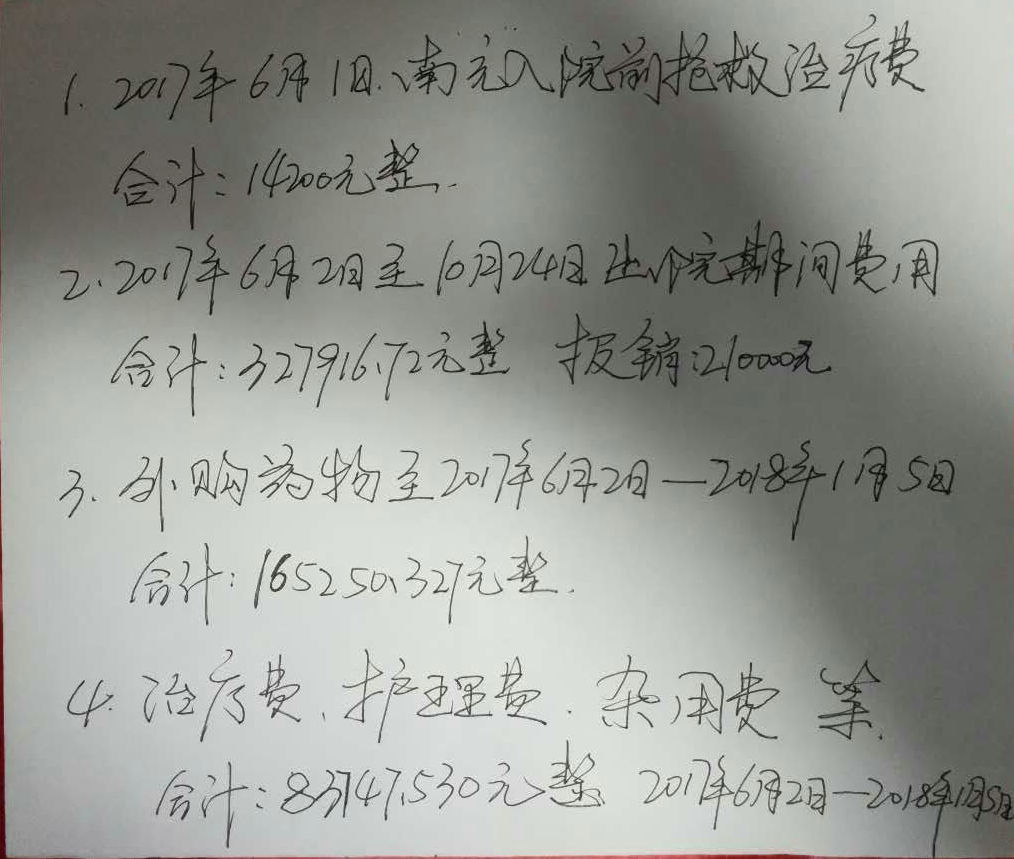 1. 2017年6月1日.南充入院前抢救治疗费
合计:14200元整.
2.2017年6月2日至10月24日 住院期间费用
合计:327916.72元整 报销:210000元
3. 外购药物至2017年6月2日—2018年1月5日
合计:165250.327元整.
4. 治疗费、护理费.杂用费 等.
合计:83747.530元整 2017年6月2日—2018年1月5日